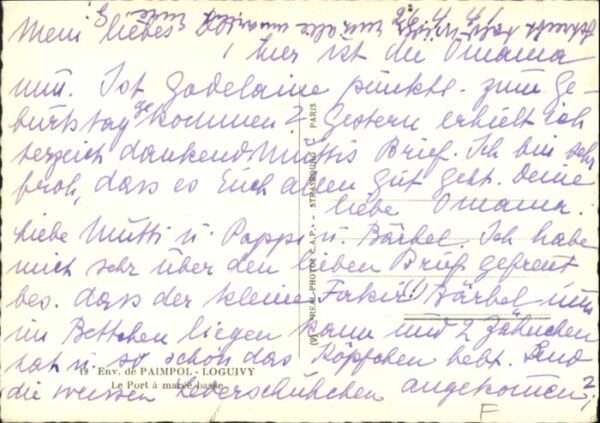 Mein liebes
hier ist die Omama
nun. Ist Godelaine pünktl. zum Ge-
burtstag gekommen? Gestern erhielt ich
herzlich dankend Muttis Brief. Ich bin sehr
froh, dass es Euch allen gut geht. Deine
liebe Omama.
Liebe Mutti u. Pappi u. Bärbel. Ich habe
mich sehr über den lieben Brief gefreut
bes. dass der kleine Fakir! Bärbel nun
im Bettchen liegen kann und 2 Zähnchen
hat u. so schön das Köpfchen hebt. Sind
die weissen Lederschühchen angekommen?
19 Env. de PAIMPOL - LOGUIVY
Le Port à marée basse
RÉAL-PHOTO C.A.P. - STRASBOURG PARIS
F